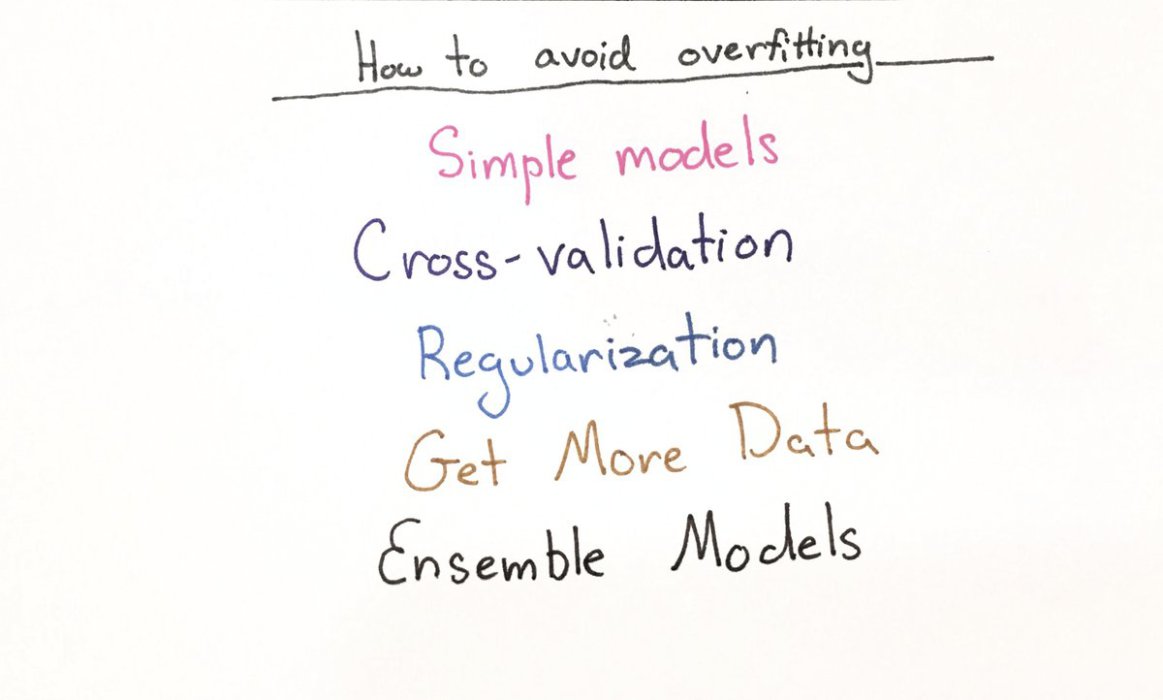 How to avoid overfitting
Simple models
Cross-validation
Regularization
Get More Data
Ensemble Models